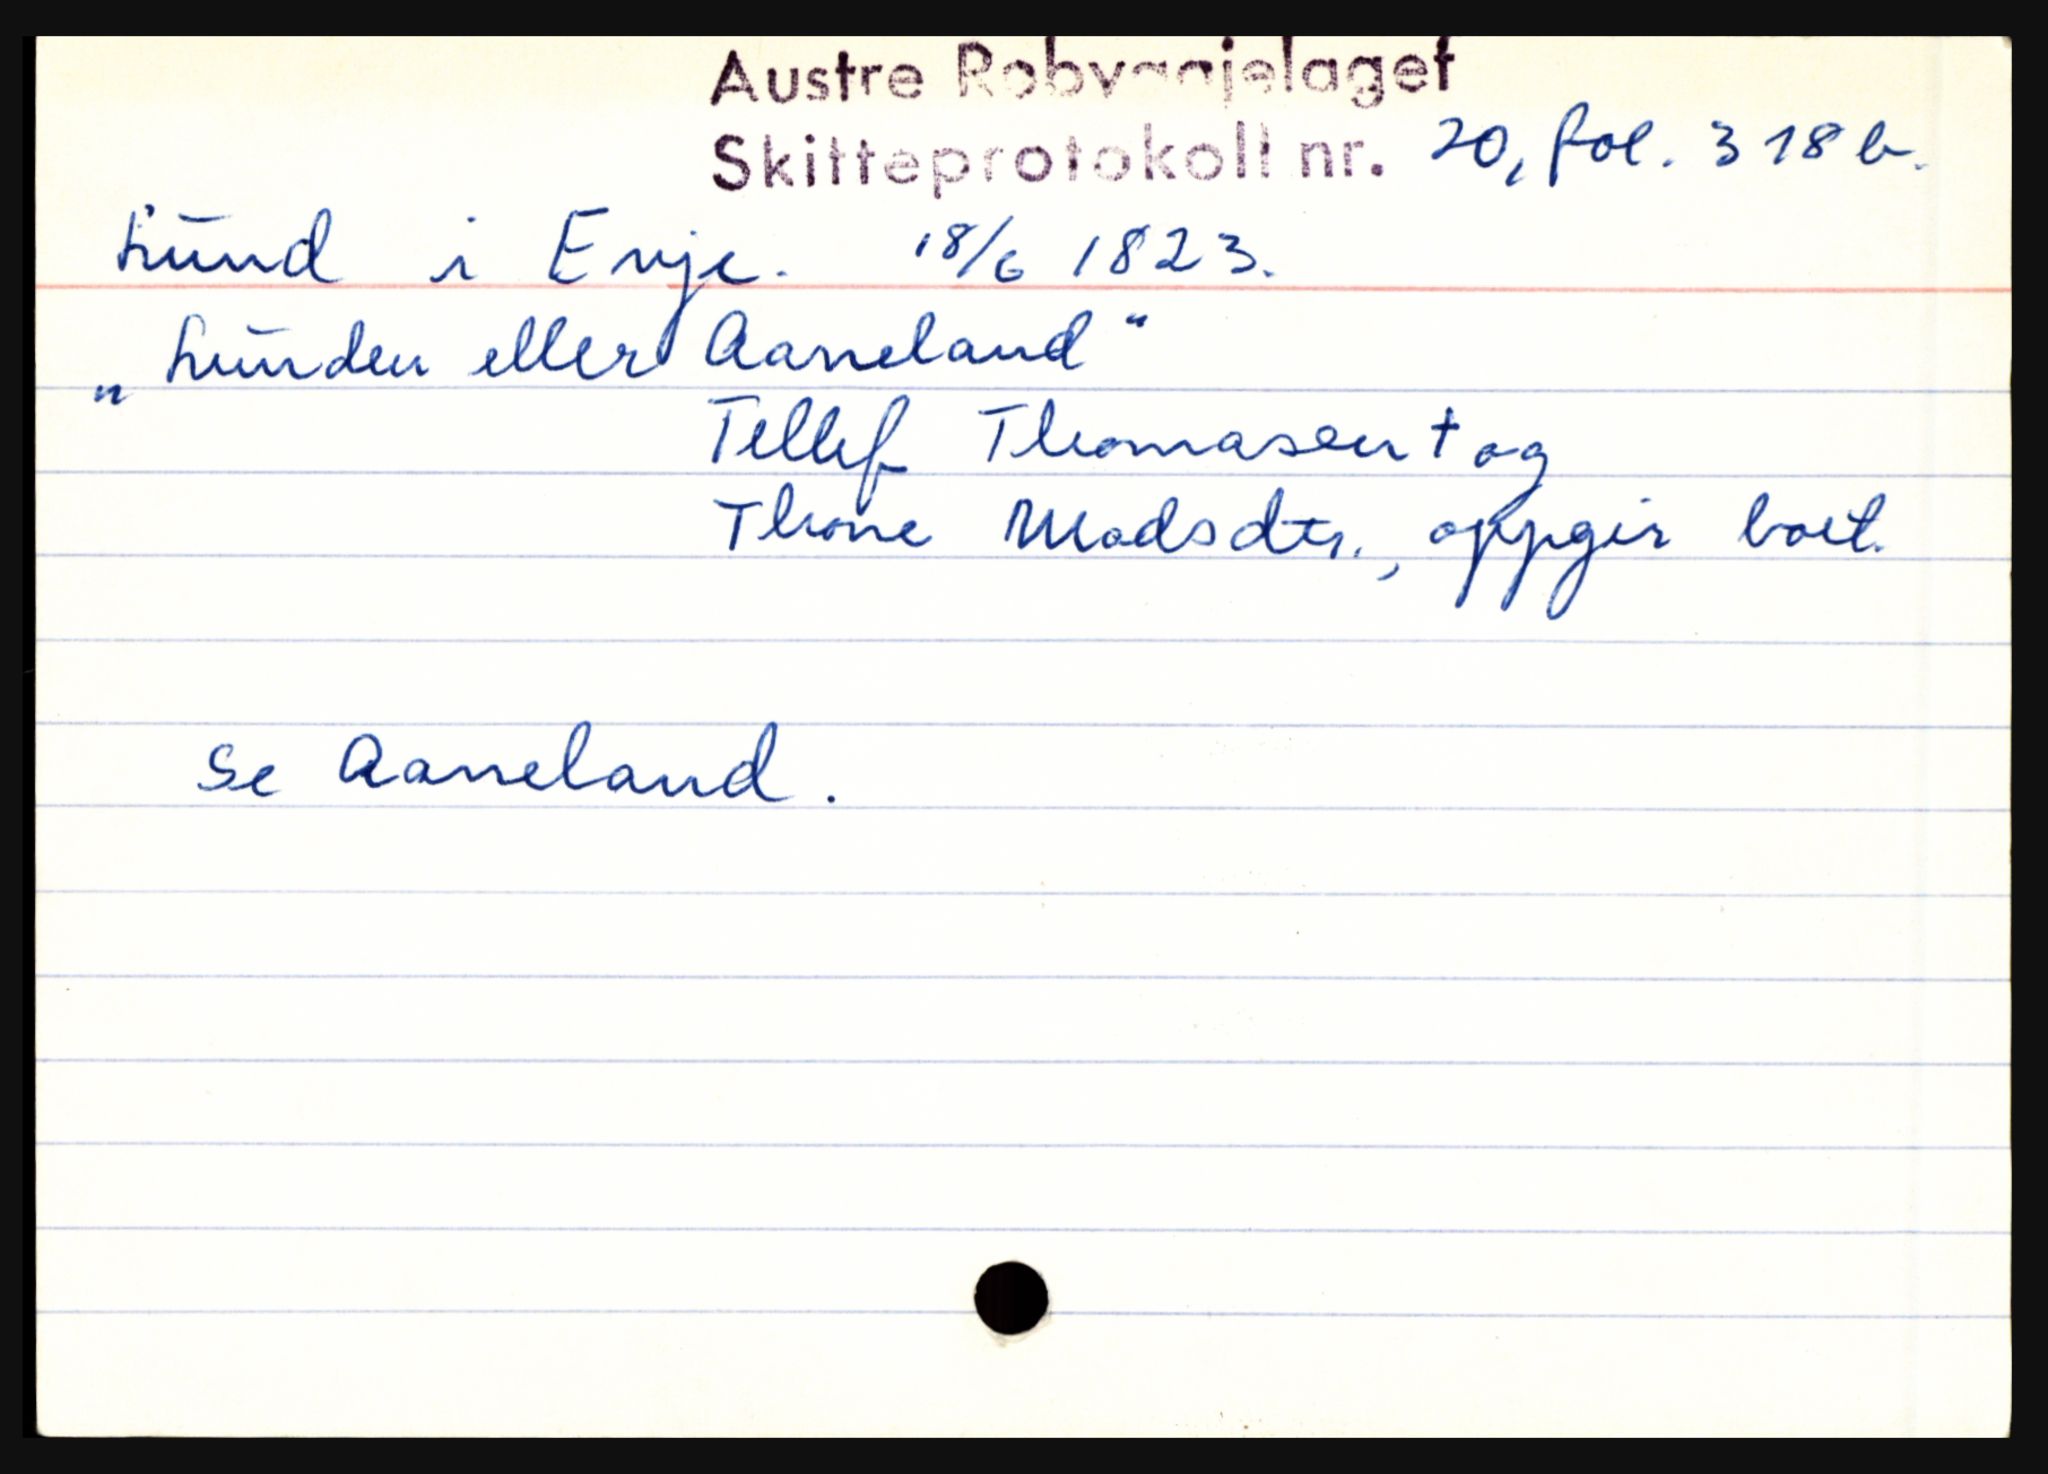 Austre Robyggjelaget
Skifteprotokoll nr. 20, fol. 318 b.
Lund i Evje. 18/6 1823.
„Lunden eller Aaneland“
Tellef Thomasen † og
Thone Madsdtr., oppgir boet.
Se Aaneland.